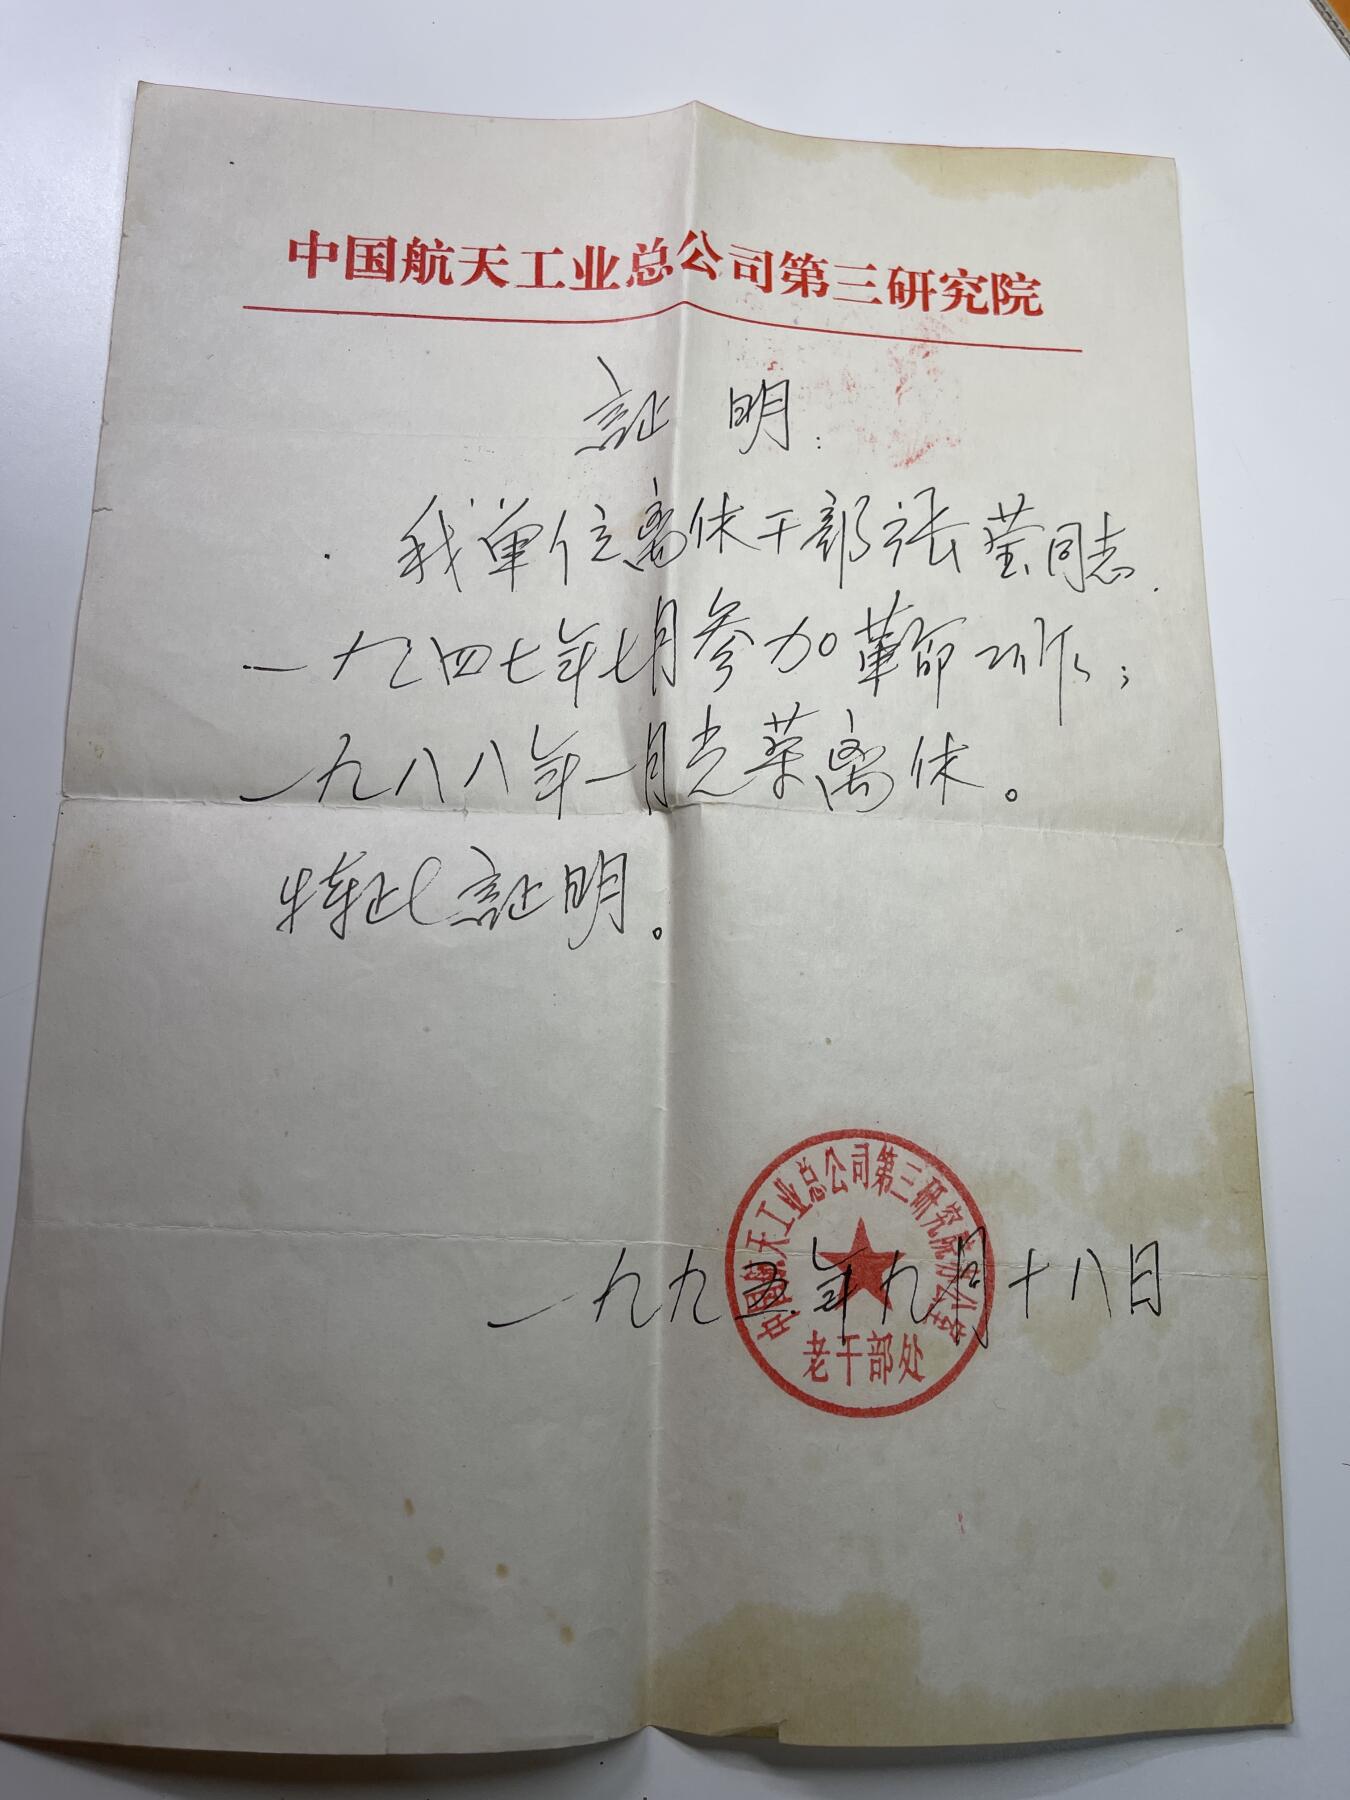 中国航天工业总公司第三研究院
証明:
我单位离休干部张莹同志.
一九四七年七月参加革命工作;
一九八八年一月光荣离休。
特此証明。
中国航天工业总公司第三研究院办公室
老干部处
一九九五年九月十八日